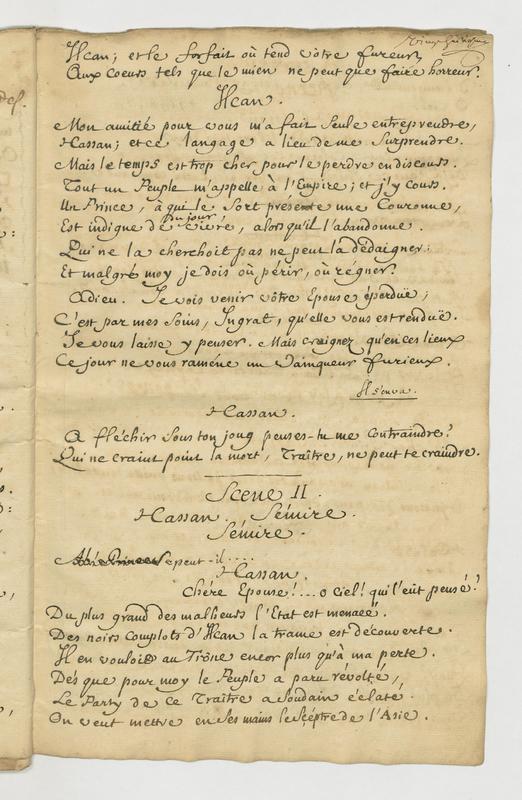 Ilcan; et le forfait où tend vôtre fureur,
Aux coeurs tels que le mien ne peut que faire horreur.
Ilcan.
Mon amitié pour vous m'a fait seule entreprendre,
Hassan; et ce langage a lieu de me Surprendre.
Mais le temps est trop cher pour le perdre en discours.
Tout un Peuple m'appelle à l'Empire; et j'y cours.
Un Prince, à qui le Sort présente une Couronne,
du jour,
Est indigne de vivre, alors qu'il l'abandonne.
Qui ne la cherchoit pas ne peut la dédaigner:
Et malgré moy je dois où périr, où régner.
Adieu. Je vois venir vôtre Epouse éperduë;
C'est par mes Soins, Ingrat, qu'elle vous est renduë.
Je vous laisse y penser. Mais craignez qu'en ces lieux
Ce jour ne vous raméne un Vainqueur furieux.
Il s'en va.
Hassan.
A fléchir Sous ton joug penses-tu me contraindre?
Qui ne craint point la mort, Traître, ne peut te craindre.
Scene II.
Hassan. Sémire.
Sémire.
Se peut-il....
Hassan.
Chére Epouse!... o Ciel! qui l'eût pensé?
Du plus grand des malheurs l'Etat est menacé.
Des noirs Complots d'Ilcan la trame est découverte.
Il en vouloit au Trône encor plus qu'à ma perte.
Dés que pour moy le Peuple a paru révolté,
Le Party de ce Traître a Soudain éclaté.
On veut mettre en Ses mains le Scéptre de l'Asie.